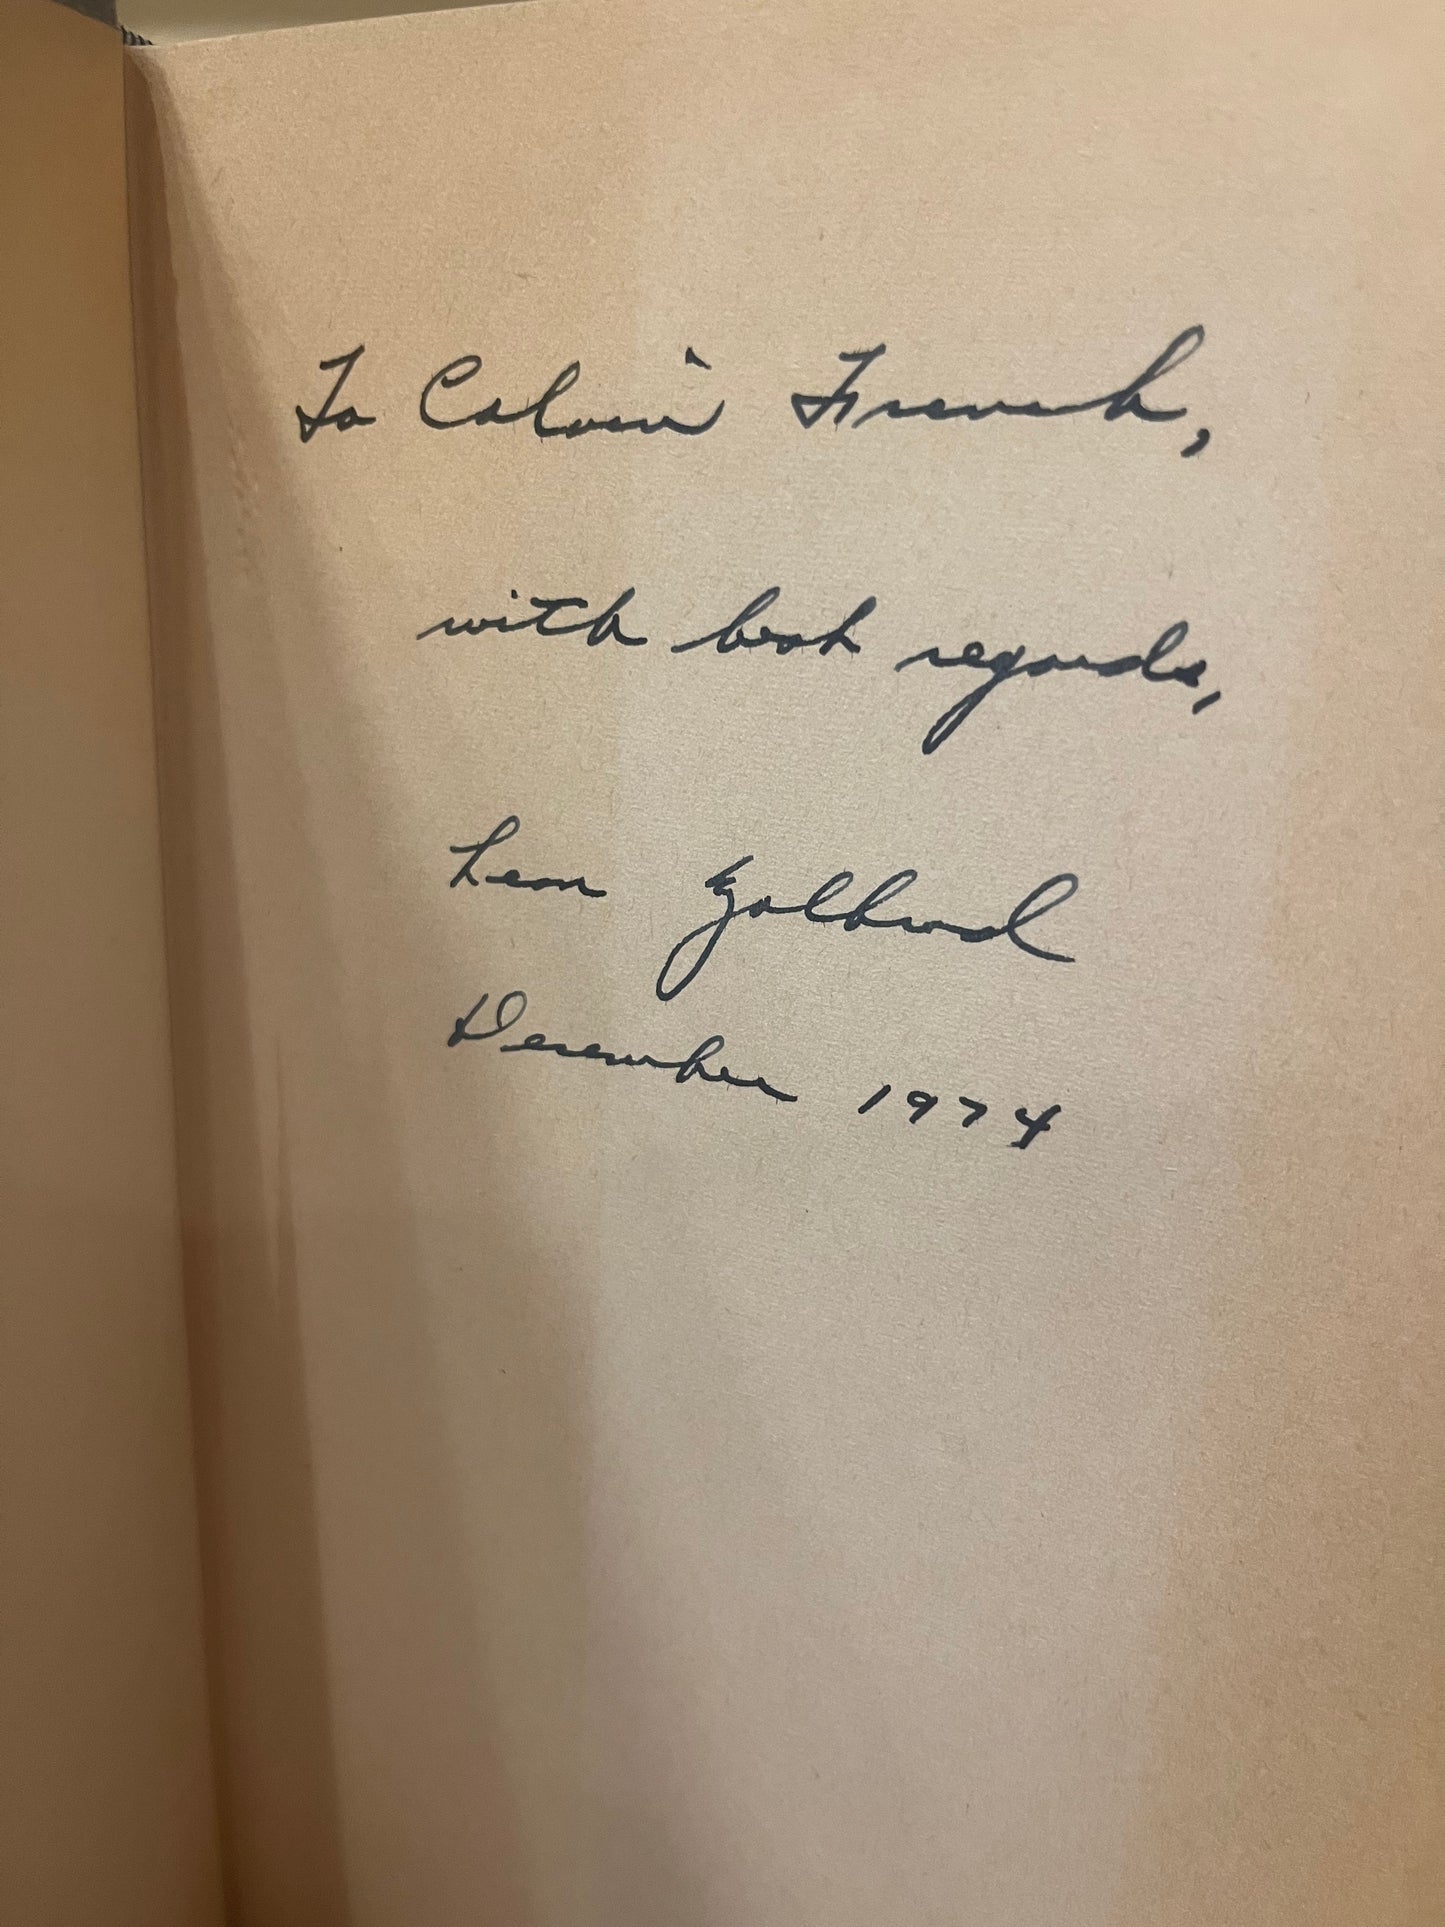 To Calvin French,
with best regards,
Leon Zolbrod
December 1974